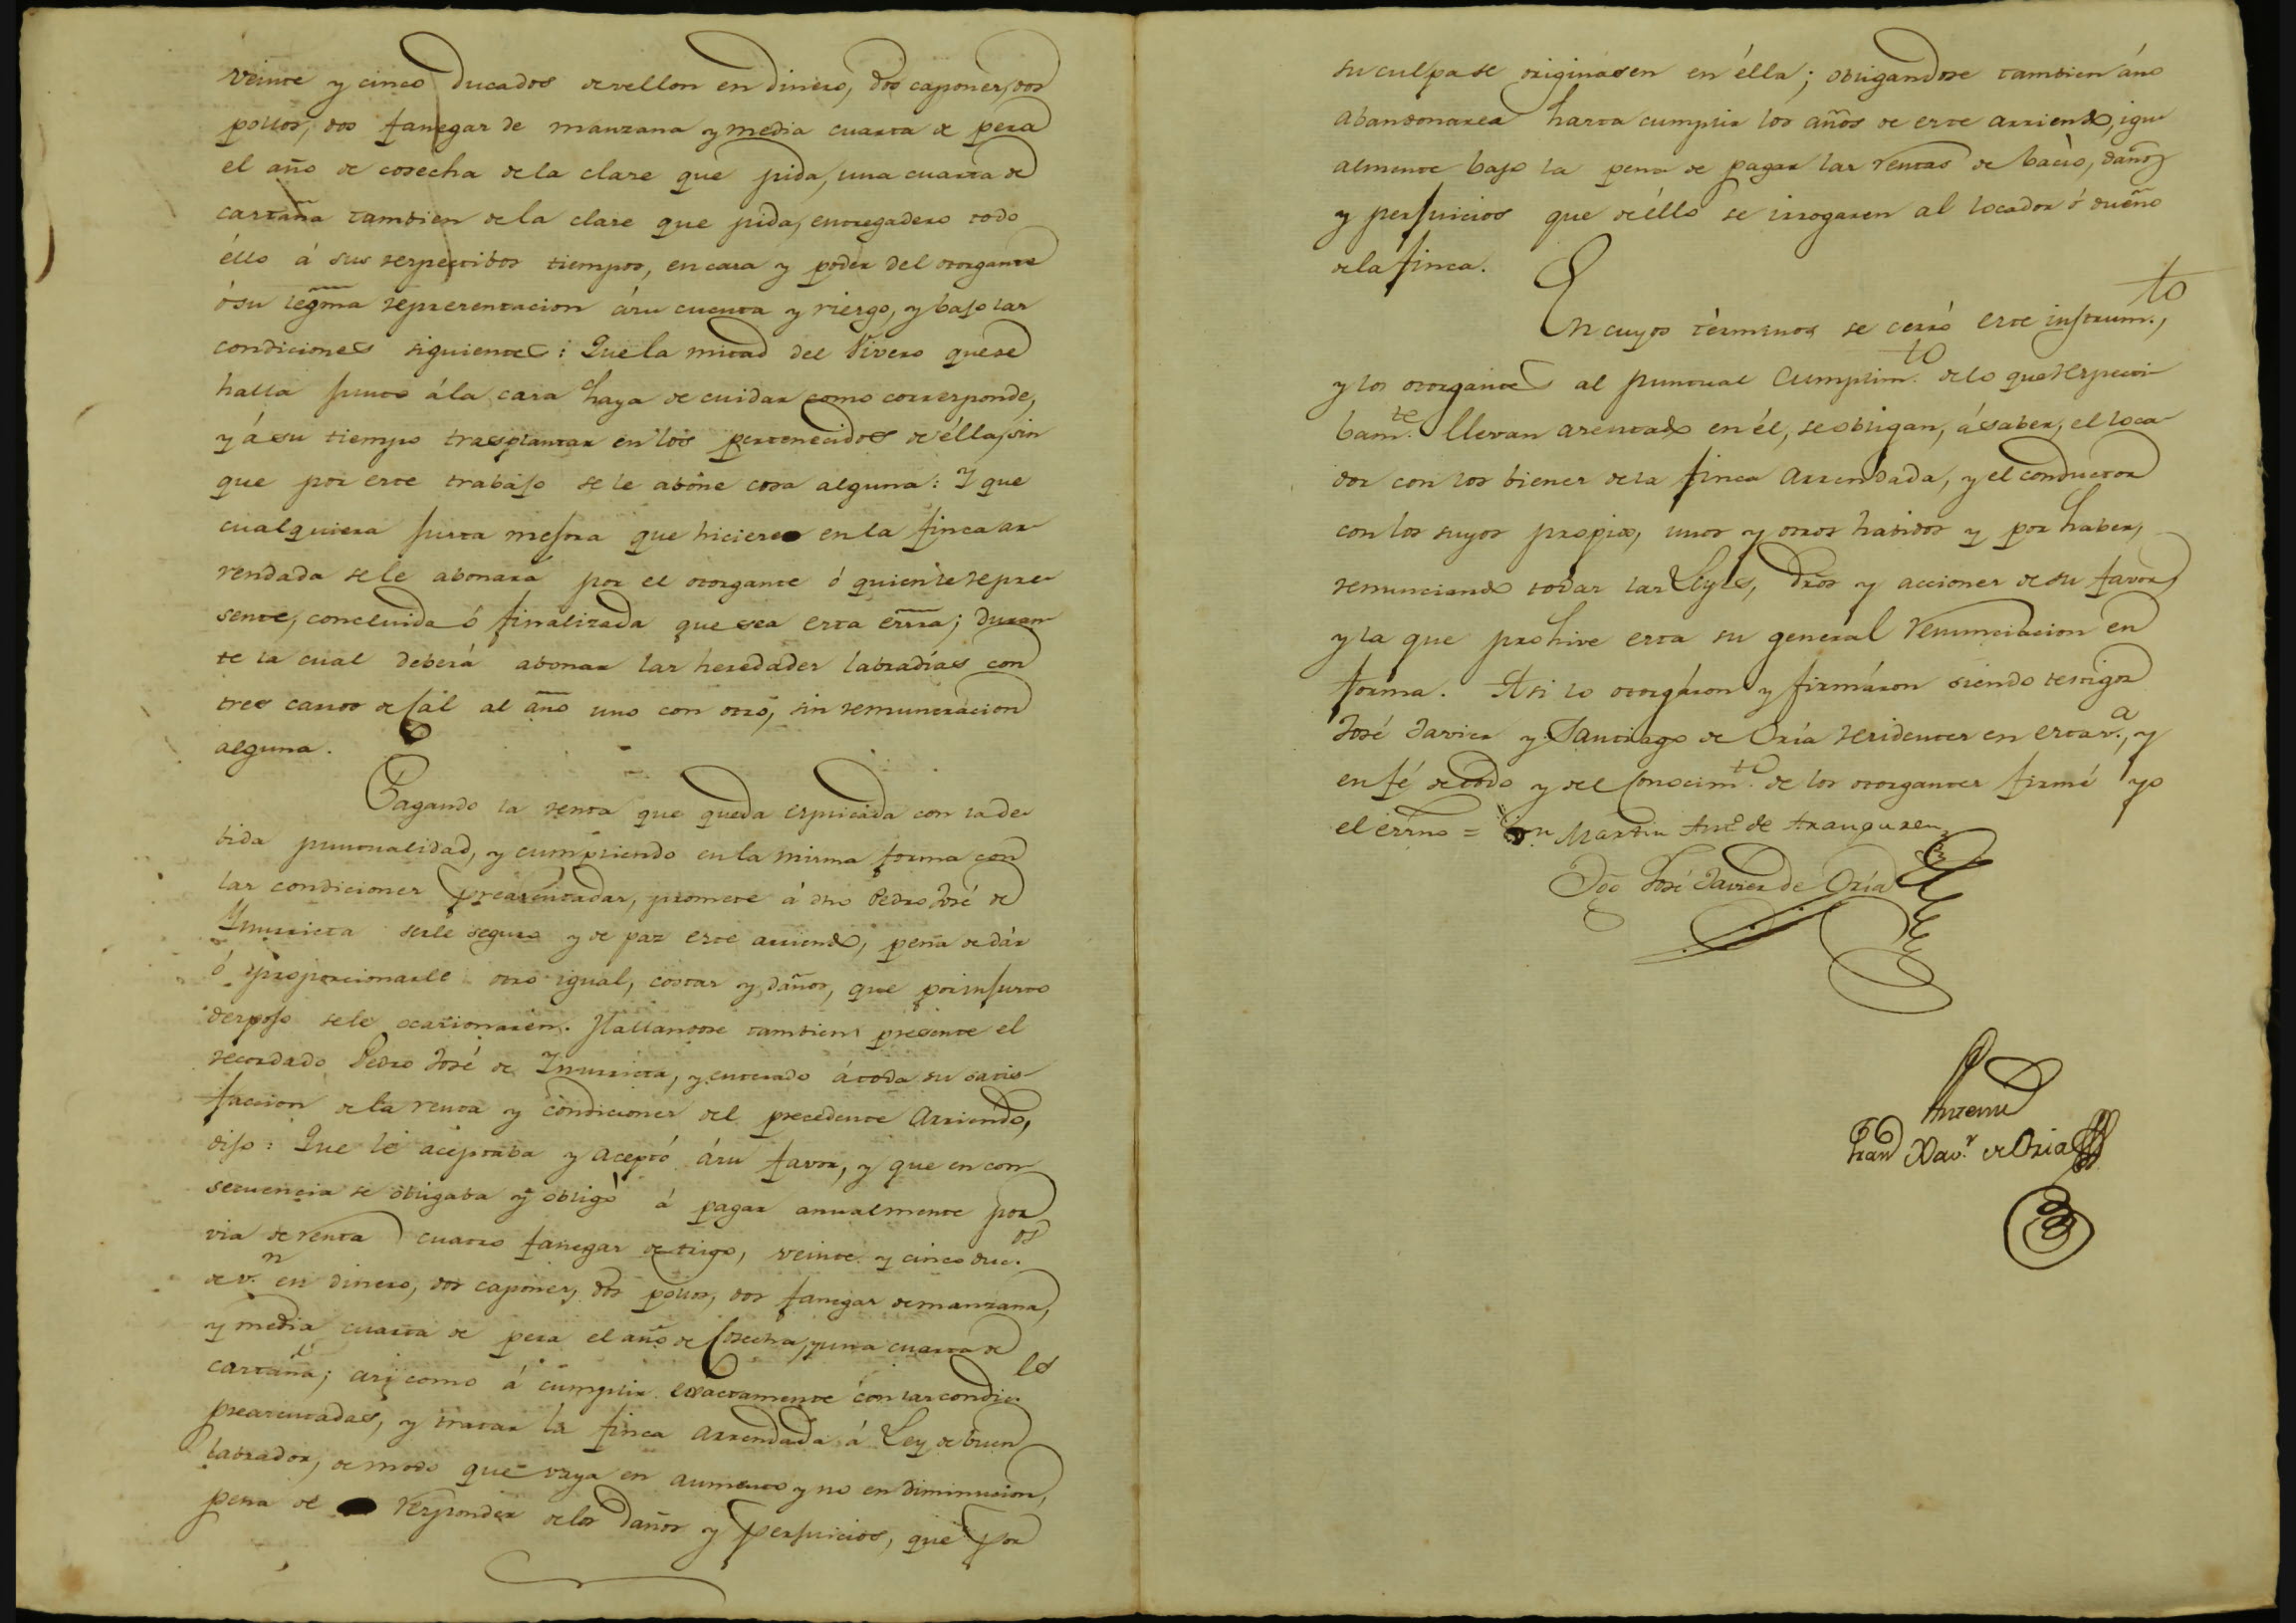 veinte y cinco Ducados de vellon en dinero, dos capones, dos
pollos, dos fanegas de manzana y media cuarta de pera
el año de cosecha de la clase que pida, una cuarta de
castaña tambien de la clase que pida, entregadero todo
éllo á sus respectibos tiempos, en casa y poder del otorgante
ó su legma representacion á su cuenta y riesgo, y bajo las
condiciones siguientes: Que la mitad del Vivero que se
halla junto á la casa haya de cuidar como corresponde,
y á su tiempo trasplantar en los pertenecidos de élla, sin
que por este trabajo se le abone cosa alguna: Y que
cualquiera justa mejora que hiciere en la finca ar-
rendada se le abonara por el otorgante ó quien le repre-
sente, concluida ó finalizada que sea esta essra; duran-
te la cual deberá abonar las heredades labradías con
tres carros de Cal al año uno con otro, sin remuneracion
alguna.
Pagando la renta que queda esplicada con la de-
bida puntualidad, y cumpliendo en la misma forma con
las condiciones preasentadas, promete á dho Pedro José de
Ynurrieta serle seguro y de paz este arriendo, pena de dár
ó proporcionarle otro igual, costas y daños, que por injusto
despojo se le ocasionaren. Hallandose tambien presente el
recordado Pedro José de Ynurrieta, y enterado á toda su satis-
faccion de la renta y condiciones del precedente Arriendo,
dijo: Que le aceptaba y aceptó á su favor, y que en con-
secuencia se obligaba y obligó á pagar anualmente por
via de renta cuatro fanegas de trigo, veinte y cinco duc.os
de v.n en dinero, dos capones, dos pollos, dos fanegas de manzana,
y media cuarta de pera el año de Cosecha, y una cuarta de
castaña; asi como á cumplir exactamente con las condic.es
preasentadas, y tratar la finca arrendada á Ley de buen
labrador, de modo que vaya en aumento y no en diminucion,
pena de responder de los daños y perjuicios, que por
su culpa se originasen en élla; obligandose tambien á no
abandonarla hasta cumplir los años de este arriendo, igu-
almente bajo la pena de pagar las rentas de bacio, daños
y perjuicios que de éllo se irrogaren al locador ó dueño
de la finca.
En cuyos términos se cerró este instrum.to,
y los otorgantes al puntual Cumplim.to de lo que respecti-
bam.te llevan asentado en él, se obligan, á saber, el loca-
dor con los bienes de la finca Arrendada, y el conductor
con los suyos propios, unos y otros habidos y por haber,
renunciando todas las Leyes, dros y acciones de su favor,
y la que prohive esta su general renunciacion en
forma. Asi lo otorgáron y firmáron siendo testigos
José Javier y Santiago de Oria residentes en esta v.a, y
en fé de todo y del Conocim.to de los otorgantes firmé yo
el essno = Martin Ant.o de Aranguren
José Javier de Oria
Antemi
Fran.co Xav.r de Oria